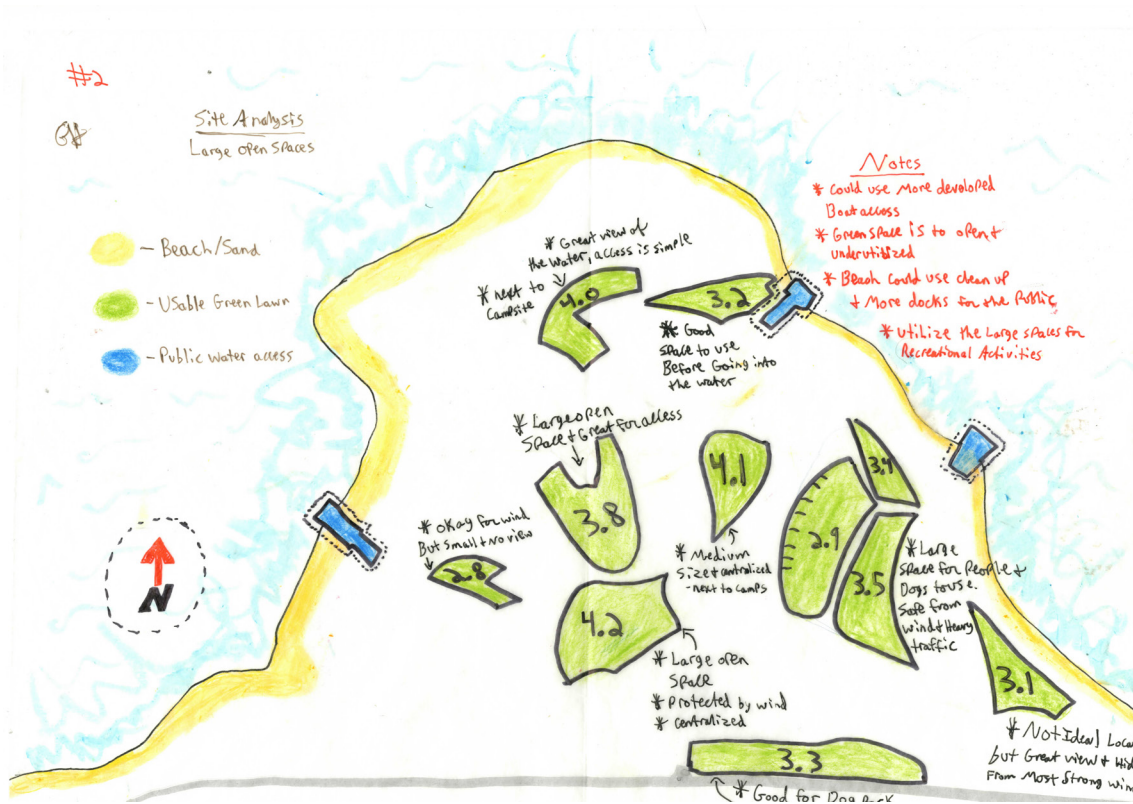 #2
Site Analysis
Large open spaces
- Beach/Sand
- Usable Green Lawn
- Public water access
N
Notes
* Could use More developed
Boat access
* Green space is to open +
underutilized
* Beach could use clean up
+ More docks for the Public
* Utilize the Large spaces for
Recreational Activities
* Great view of
the water, access is simple
* next to
Campsite
4.0
3.2
* Good
space to use
Before Going into
the water
* Large open
space + Great for access
3.8
4.1
* Medium
size + centralized
- next to camps
3.4
2.9
3.5
* Large
space for People +
Dogs to use.
Safe from
wind + Heavy
traffic
* okay for wind
But small + no view
2.8
4.2
* Large open
space
* Protected by wind
* centralized
3.1
* Not Ideal Loca
but Great view + Hid
From Most Strong win
3.3
* Good for Dog Park